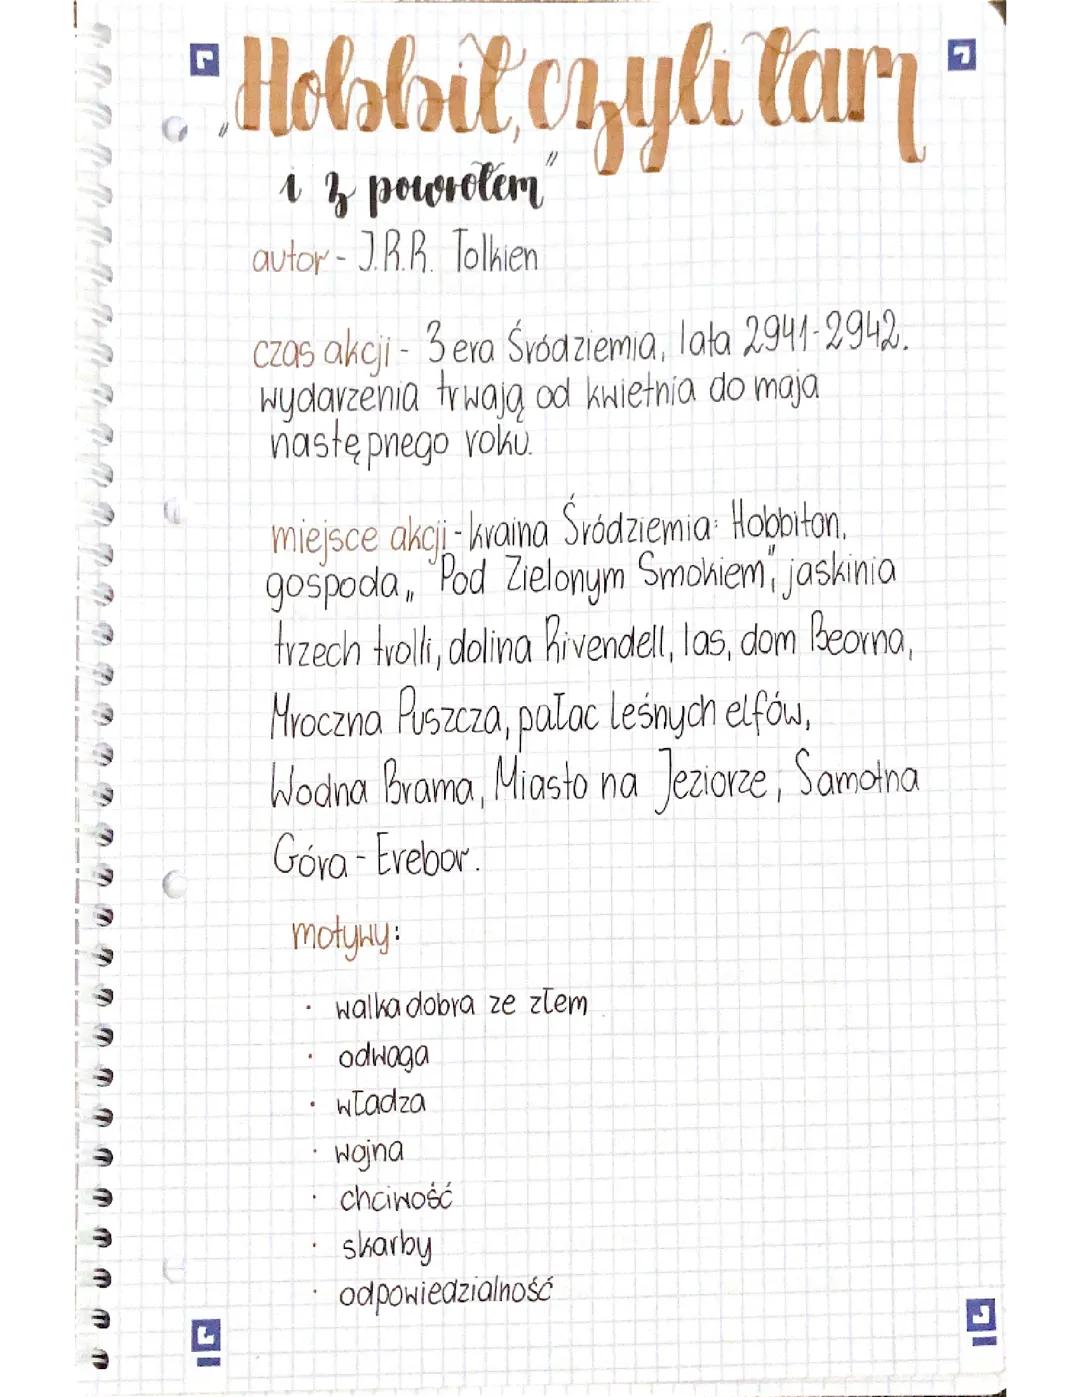 „Hobbit, czyli tam
i z powrotem"
autor - J.R.R. Tolkien
czas akcji - 3 era Śródziemia, lata 2941-2942.
wydarzenia trwają od kwietnia do maja
następnego roku.
miejsce akcji - kraina Śródziemia: Hobbiton,
gospoda „Pod Zielonym Smokiem", jaskinia
trzech trolli, dolina Rivendell, las, dom Beorna,
Mroczna Puszcza, pałac leśnych elfów,
Wodna Brama, Miasto na Jeziorze, Samotna
Góra - Erebor.
motywy:
· walka dobra ze złem
· odwaga
· władza
· wojna
· chciwość
· skarby
· odpowiedzialność